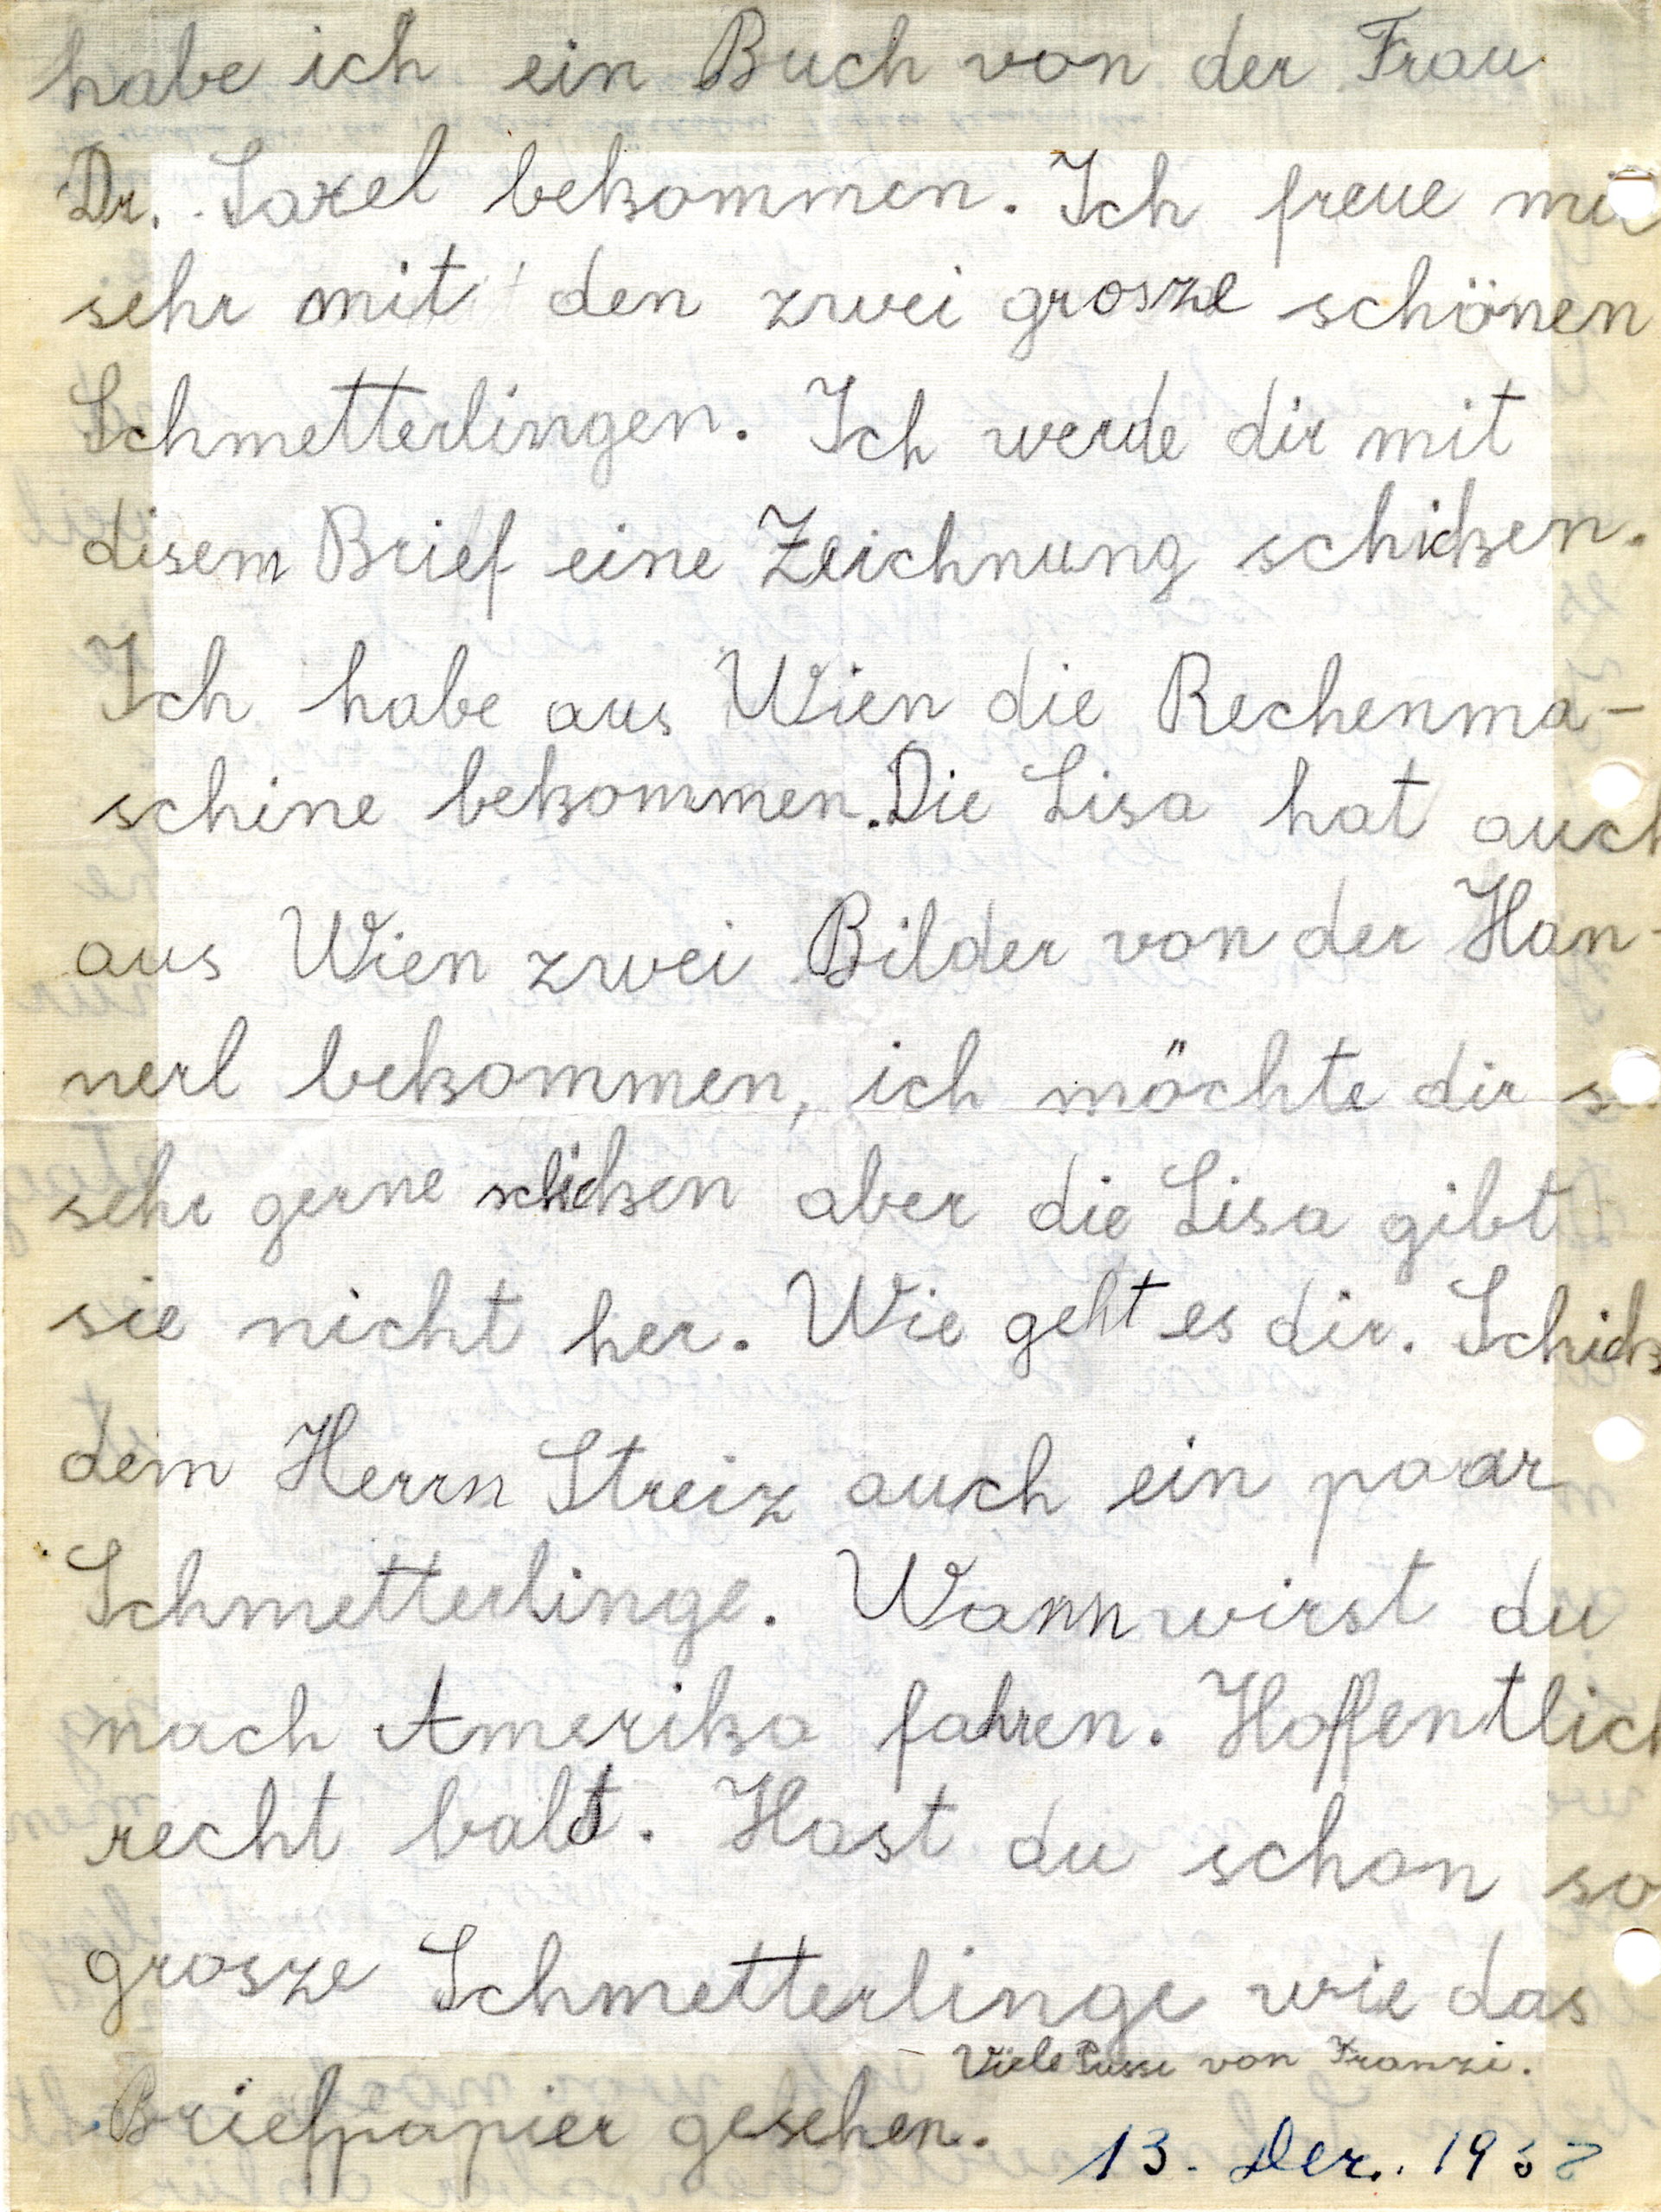 habe ich ein Buch von der Frau
Dr. Saxel bekommen. Ich freue
sehr mit den zwei grosze schönen
Schmetterlingen. Ich werde dir mit
disem Brief eine Zeichnung schicken.
Ich habe aus Wien die Rechenma-
schine bekommen. Die Lisa hat auch
aus Wien zwei Bilder von der Han-
nerl bekommen, ich möchte dir
sehr gerne schicken aber die Lisa gibt
sie nicht her. Wie geht es dir. Schick
dem Herrn Streiz auch ein paar
Schmetterlinge. Wann wirst du
nach Amerika fahren. Hoffentlich
recht balt. Hast du schon so
grosze Schmetterlinge wie das
Briefpapier gesehen.
Viele Pussi von Franzi.
13. Dez. 19